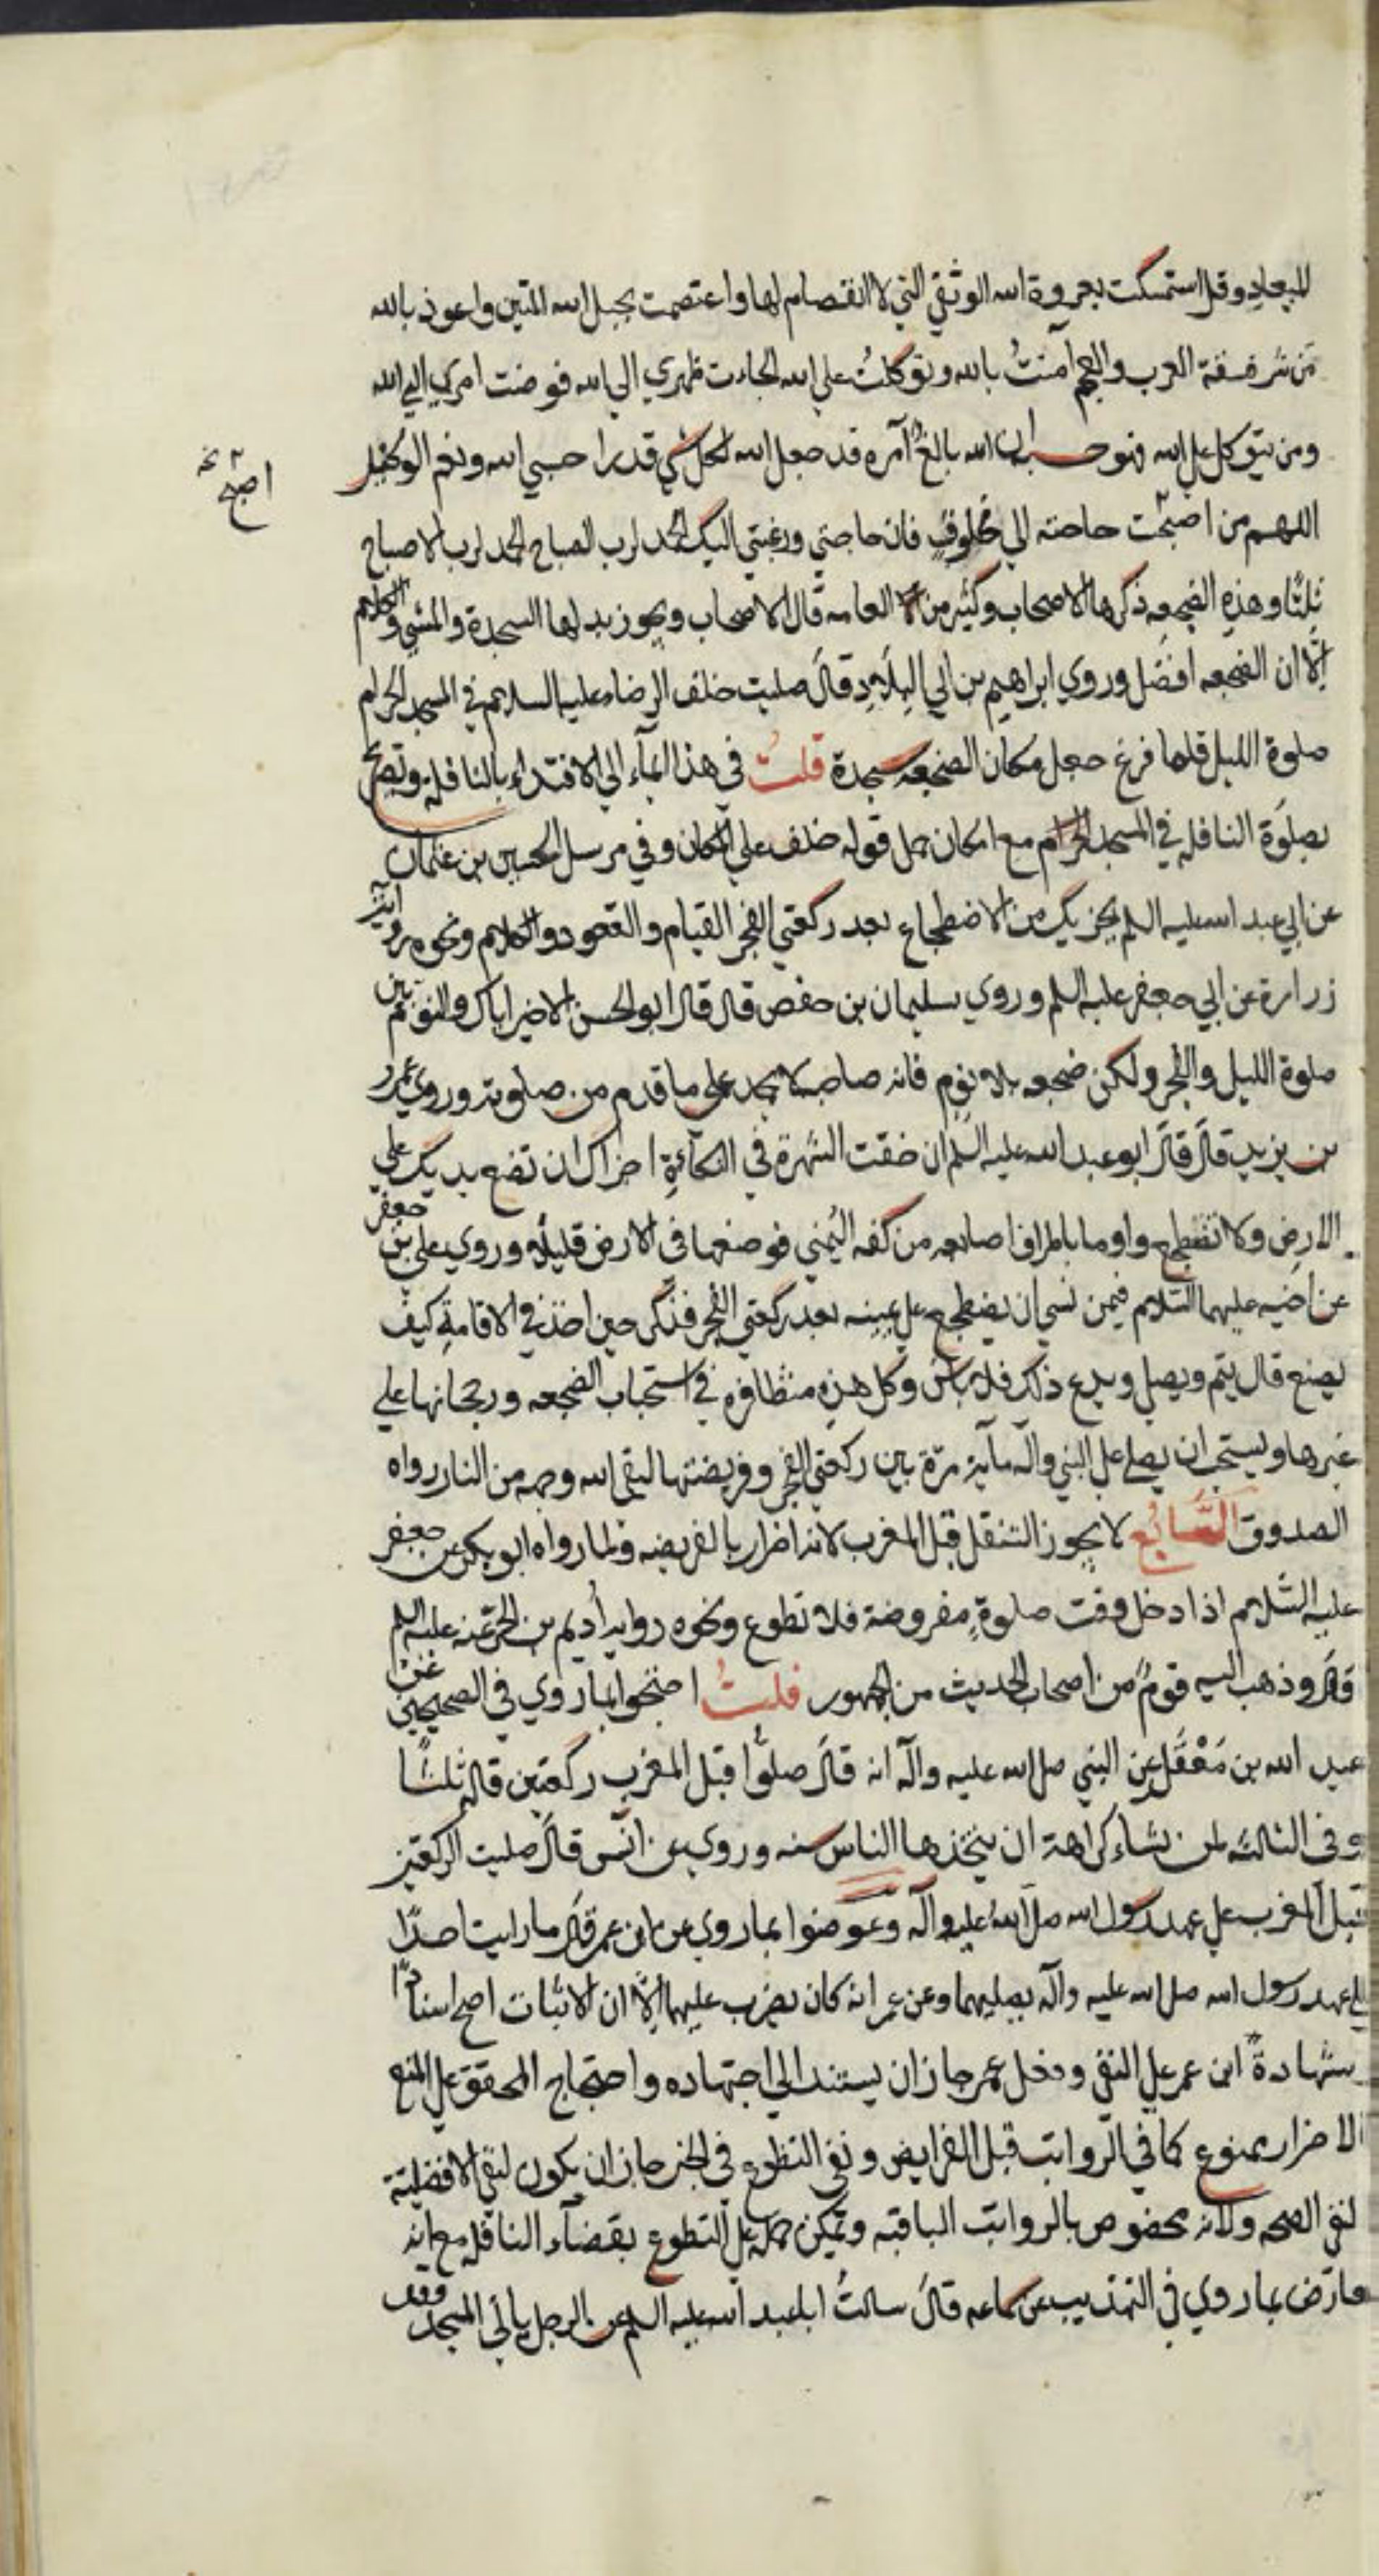 الميعاد وقل استمسكت بعروة الله الوثقي التي لا انفصام لها واعتصمت بحبل الله المتين واعوذ بالله
من شر فسقة العرب والعجم آمنتُ بالله وتوكلتُ علي الله الجاءت ظهري الي الله فوضت امري الي الله
ومن يتوكل علي الله فهو حسبه ان الله بالغ آمره قد جعل الله لكل شي قدرا حسبي الله ونعم الوكيل
اللهم من اصبحت حاجته الي مخلوقٍ فان حاجتي ورغبتي اليك الحمد لرب الصباح الحمد لرب الاصباح
اصبح خ
ثلثًا وهذه الضجعه ذكرها الاصحاب وكثير من العامه قال الاصحاب ويجوز بدلها السجدة والمشي والكلام
اِلّا ان الضجعه افضل وروي ابراهيم بن ابي البِلادِ قال صليت خلف الرضا عليه السلام في المسجد الحرام
صلوة الليل فلما فرغ جعل مكان الضجعه سجدة قلتُ في هذا ايمآء الي الاقتداء بالنافلة وتصريح
بصلوة النافله في المسجد الحرام مع امكان حمل قوله خلف علي المكان وفي مرسل الحسين بن عثمان
عن ابي عبد الله عليه السلم يجزيك من الاضطجاع بعد ركعتي الفجر القيام والقعود والكلام ونحوه رواية
زرارة عن ابي جعفر عليه السلم وروي سليمان بن حفص قال قال ابو الحسن الاخير اياك والنوم بين
صلوة الليل والفجر ولكن ضجعه بلا نوم فانه صاحبه لا يحمد علي ما قدم من صلوته وروي عمر
بن يزيد قالَ قالَ ابو عبد الله عليه السلم ان خفت الشهرة في التكآءةِ اجزاك ان تضع يديك علي
الارض ولا تضطجع واوما باطراف اصابعه من كفه اليُمني فوضعها في الارض قليلًا وروي علي بن جعفر
عن اخيه عليهما السّلام فيمن نسي ان يضطجع علي يمينه بعد ركعتي الفجر فذكر حين اخذ في الاقامةِ كيف
يصنع قال يتم ويصلي ويدع ذلك فلا باس وكل هذه متظافره في استحباب الضجعه ورجحانها علي
غيرها ويستحب ان يصلي علي النبي وآله مآية مرّة بين ركعتي الفجر وفريضتها ليقي الله وجهه من النار رواه
الصدوق السّابع لا يجوز التنفل قبل المغرب لانه اضرار بالفريضه ولما رواه ابو بكر عن جعفر
عليه السّلام اذا دخل وقت صلوةٍ مفروضة فلا تطوع ونحوه رواية اُديم بن الحرّ عنه عليه السلم
قالَ وذهب اليه قومٌ من اصحاب الحديث من الجمهور قلتُ احتجوا بما روي في الصحيحين عن
عبد الله بن مَعْقَل عن النبي صل الله عليه وآله انه قالَ صلوا قبل المغرب ركعتين قاله ثلثًا
وفي الثالثه لمن شاء كراهة ان يتخذها الناس سنه وروي عن انس قالَ صليت الركعتين
قبل المغرب علي عهد رسول الله صل اللهُ عليه وآله وعوضوا بما روي عن ابن عمر قالَ ما رايت احدًا
علي عهد رسول الله صل الله عليه وآله يصليهما وعن عمر انه كان يضرب عليهما اِلّا ان الاثبات اصح اسنادًا
شهادة ابن عمر علي النفي وفعل عمر جاز ان يستند الي اجتهاده واحتجاج المحقق علي المنع
الاضرار ممنوع كما في الرواتب قبل الفرايض ونفي التطوع في الخبر جاز ان يكون لنفي الافضلية
لنفي الصحه ولانه مخصوص بالرواتب الباقيه ويمكن حمله علي التطوع بقضآء النافله مع انه
معارض بما روي في التهذيب عن سماعه قالَ سالتُ ابا عبد الله عليه السلم عن الرجل ياتي المسجد وقد